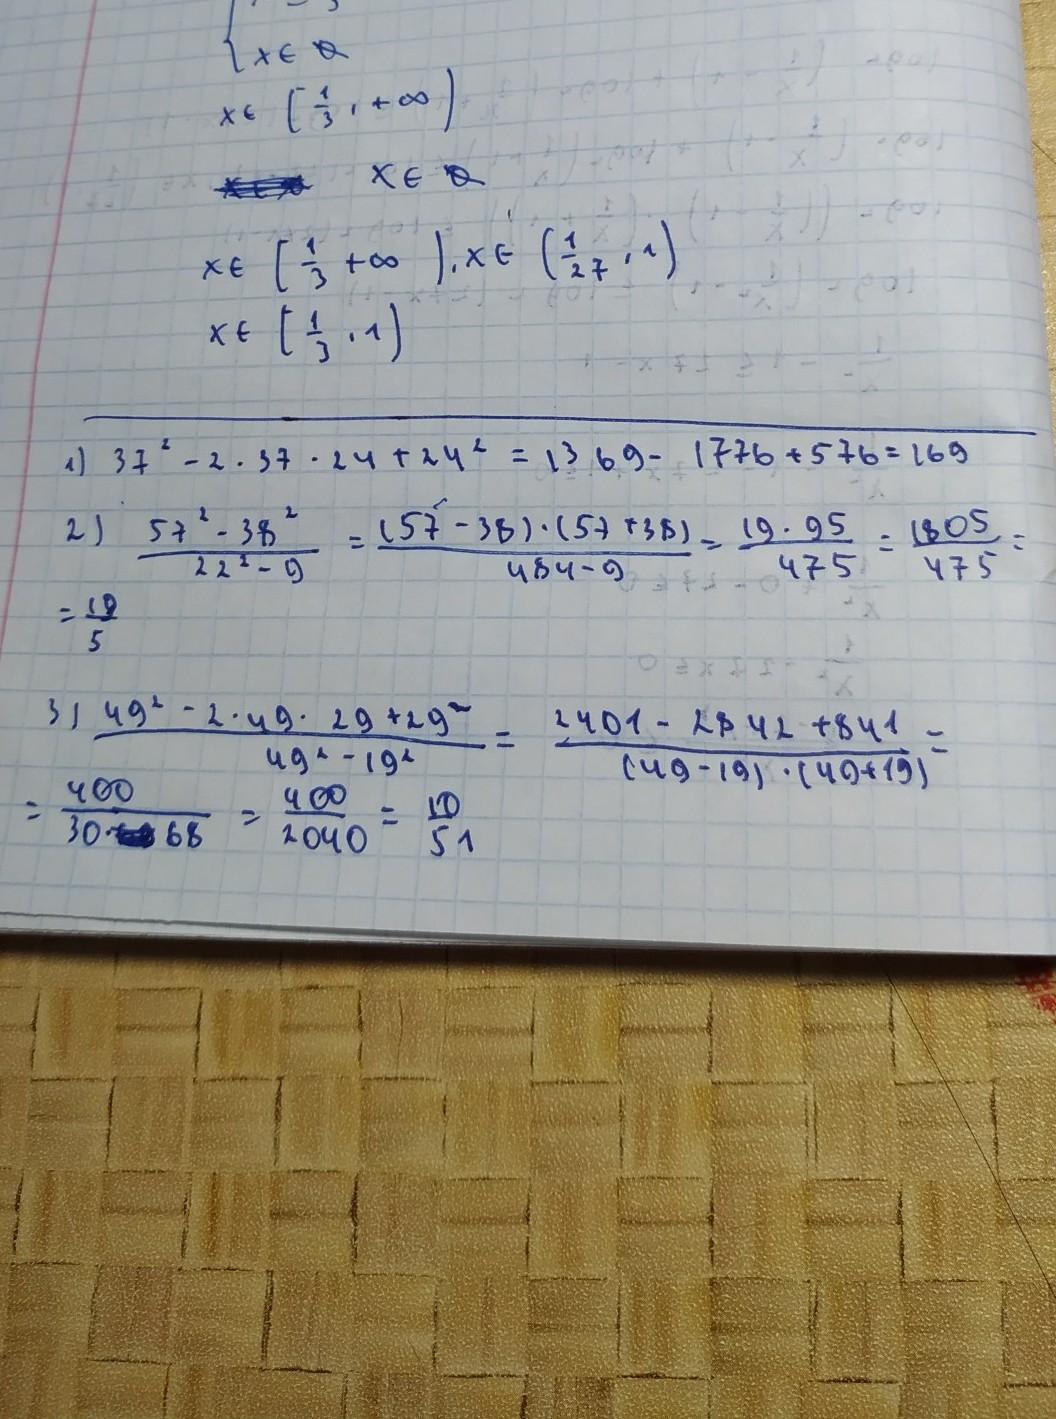 x ∈ ∅
x ∈ [1/3, +∞)
x ∈ ∅
x ∈ [1/3 +∞), x ∈ (1/27, 1)
x ∈ [1/3, 1)
1) 37² - 2·37·24 + 24² = 1369 - 1776 + 576 = 169
2) (57² - 38²)/(22² - 9) = ((57 - 38)·(57 + 38))/(484 - 9) = (19·95)/475 = 1805/475 =
= 19/5
3) (49² - 2·49·29 + 29²)/(49² - 19²) = (2401 - 2842 + 841)/((49 - 19)·(49 + 19)) =
= 400/(30·68) = 400/2040 = 10/51